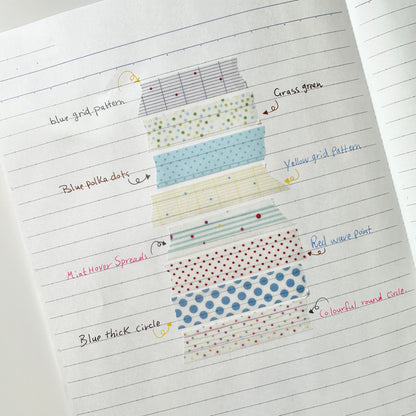 blue grid pattern
Grass green
Blue polka dots
Yellow grid Pattern
Mint Hover Spreads
Red wave point
Blue thick circle
Colourful round circle